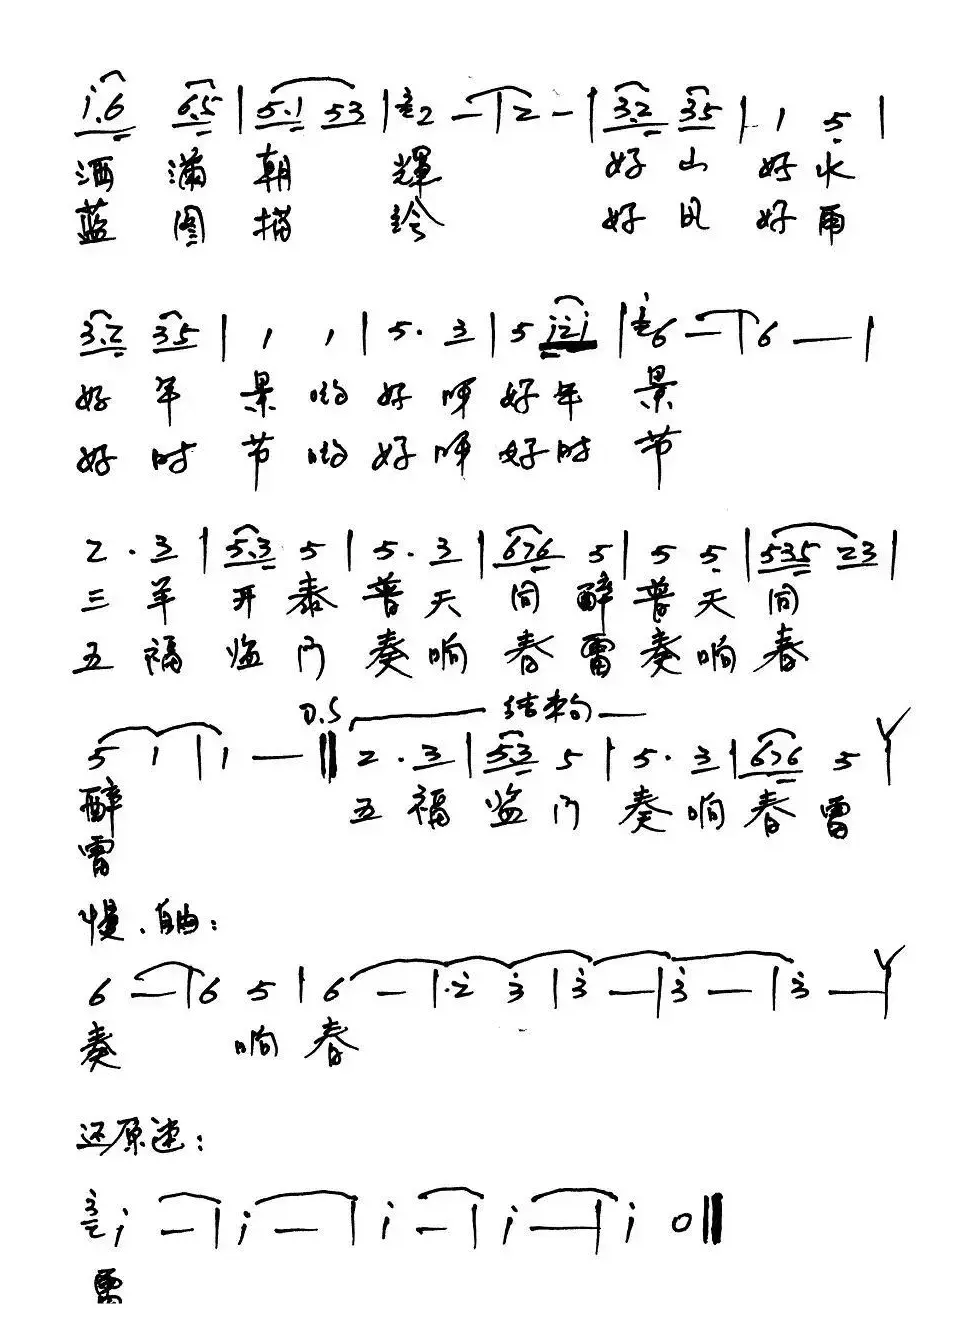 i.6 6.5 | 5.1 53 | 3 2 — | 2 — | 3.2 35 | 1 5 |
洒 满 朝 輝 好 山 好 水
蓝 图 描 绘 好 风 好 雨
3.2 35 | 1 1 | 5. 3 | 5 i2i | i 6 — | 6 — |
好 年 景 哟 好 呀 好 年 景
好 时 节 哟 好 呀 好 时 节
2 . 3 | 5.3 5 | 5 . 3 | 676 5 | 5 5 | 535 23 |
三 羊 开 泰 普 天 同 醉 普 天 同
五 福 临 门 奏 响 春 雷 奏 响 春
D.S 结束句
5 1 | 1 — || 2 . 3 | 5.3 5 | 5 . 3 | 676 5 |
醉 五 福 临 门 奏 响 春 雷
雷
慢、自由:
6 — | 6 5 | 6 — | .2 3 | 3 — | 3 — | 3 — |
奏 响 春
还原速:
3 2 i — | i — | i — | i — | i 0 ||
雷